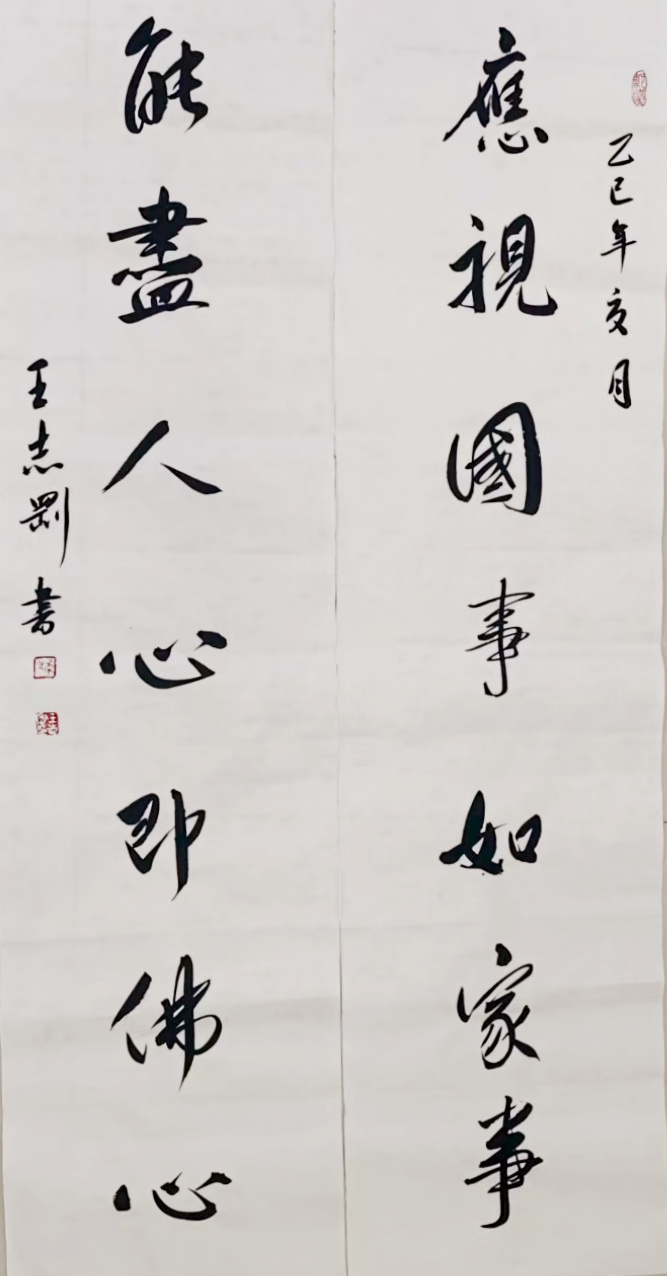 乙巳年亥月
應視國事如家事
能盡人心即佛心
王志剛書